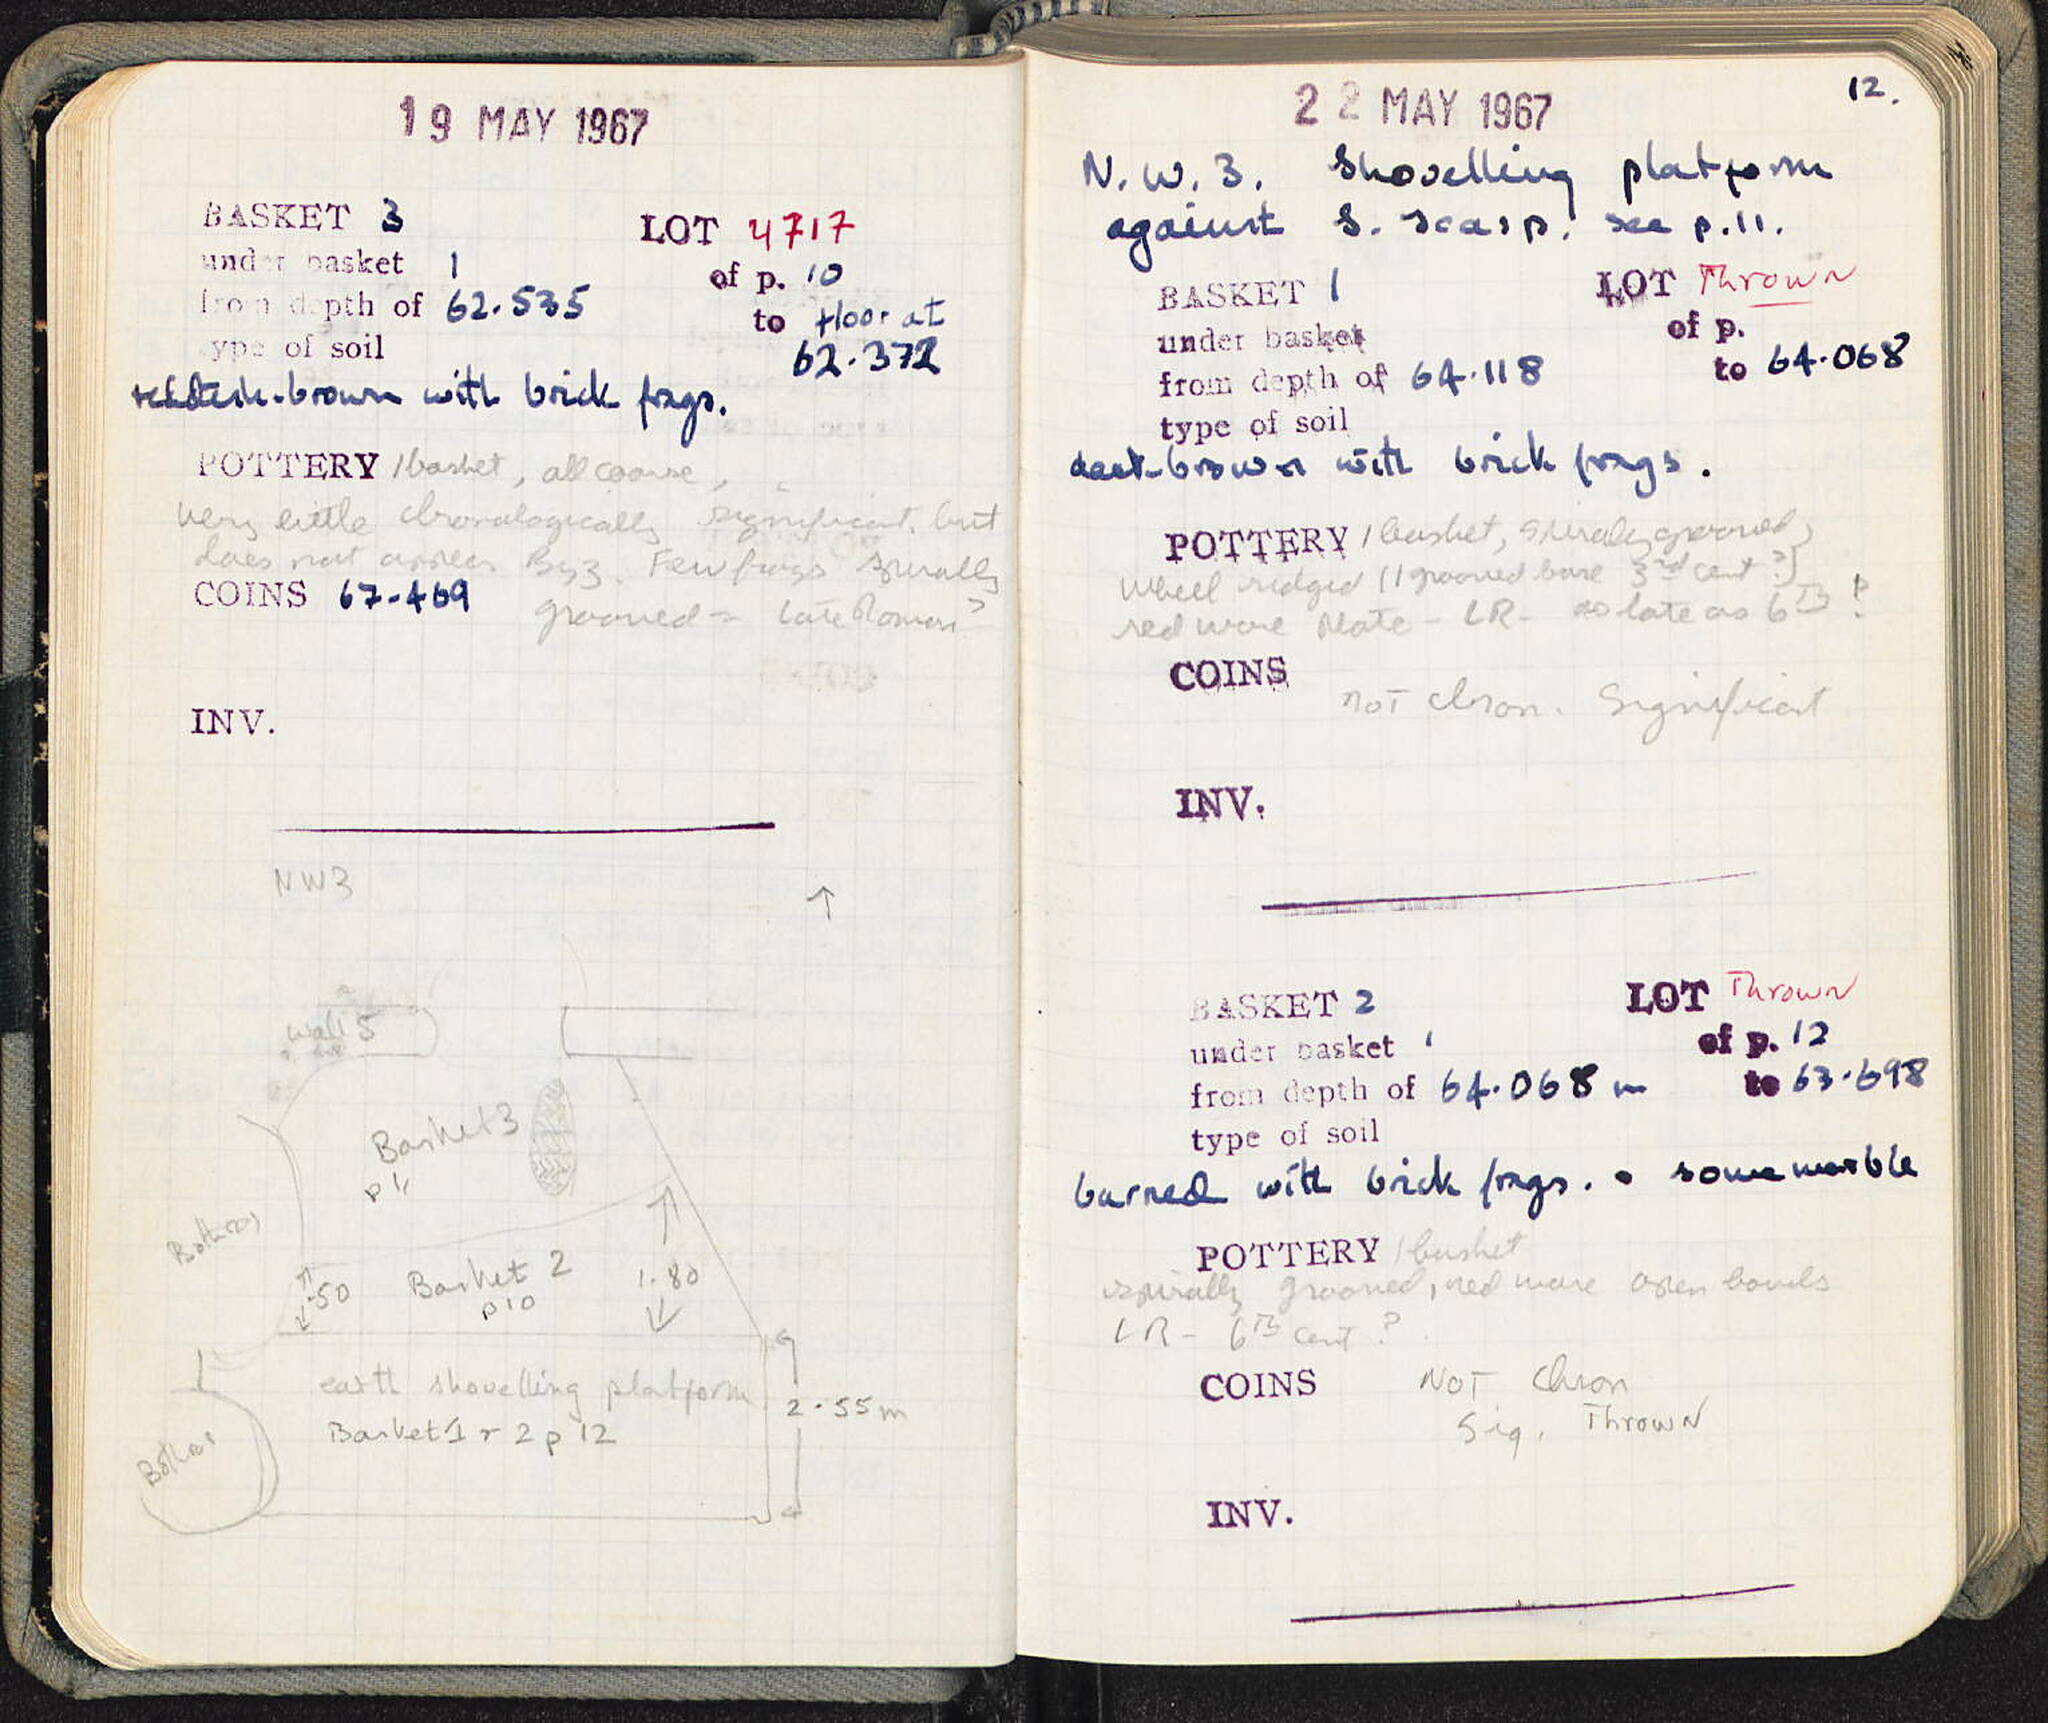 19 MAY 1967
BASKET 3 LOT 4717
under basket 1 of p. 10
from depth of 62.535 to floor at
type of soil 62.372
reddish-brown with brick frags.
POTTERY 1 basket, all coarse,
very little chronologically significant, but
does not appear Byz. Few frags spirally
COINS 67-469 grooved = Late Roman?
INV.
NW3
Wall 5
Basket 3
p 11
Bothros
Basket 2
p 10
.50
1.80
earth shovelling platform
2.55m
Basket 1 + 2 p 12
Bothros
12.
22 MAY 1967
N.W.3. Shovelling platform
against S. scarp. see p.11.
BASKET 1 LOT Thrown
under basket of p.
from depth of 64.118 to 64.068
type of soil
dark-brown with brick frags.
POTTERY 1 basket, spirally grooved,
wheel ridged (1 grooved base 3rd cent?)
red ware plate - LR - as late as 6th?
COINS
not chron. significant
INV.
BASKET 2 LOT Thrown
under basket 1 of p. 12
from depth of 64.068 m to 63.698
type of soil
burned with brick frags. some marble
POTTERY 1 basket
spirally grooved, red ware open bowls
LR - 6th cent?
COINS NOT Chron
Sig. Thrown
INV.